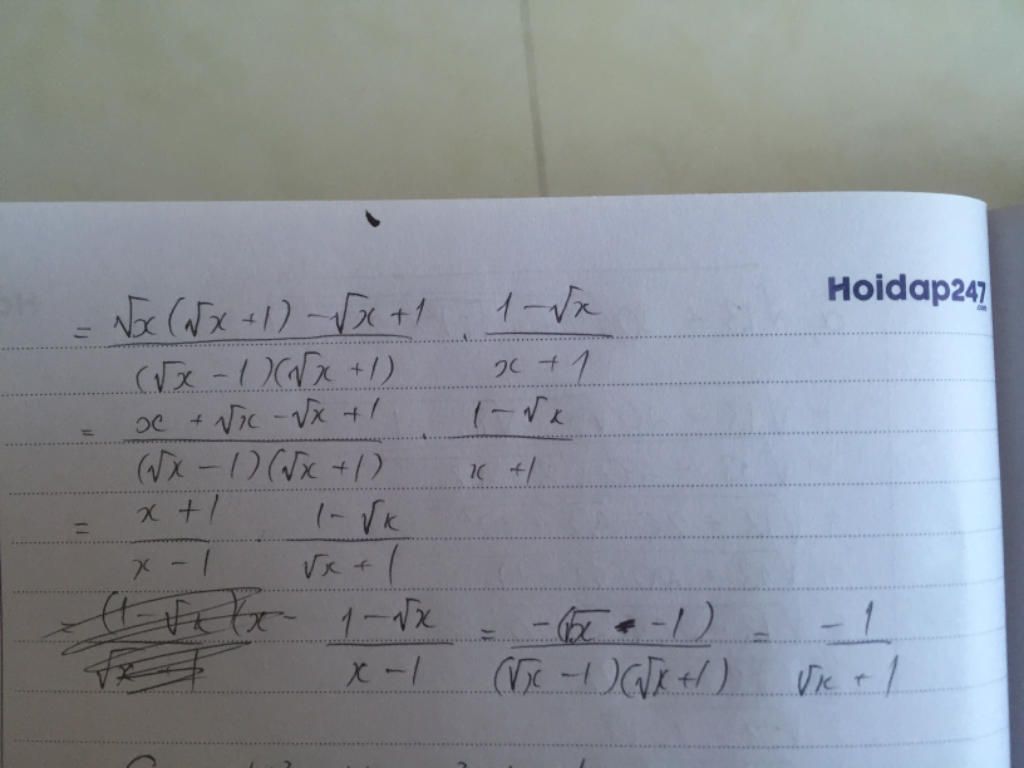 Hoidap247.com
= √x(√x+1)-√x+1 / (√x-1)(√x+1) . 1-√x / x+1
= x+√x-√x+1 / (√x-1)(√x+1) . 1-√x / x+1
= x+1 / x-1 . 1-√x / √x+1
1-√x / x-1 = -(√x-1) / (√x-1)(√x+1) = -1 / √x+1